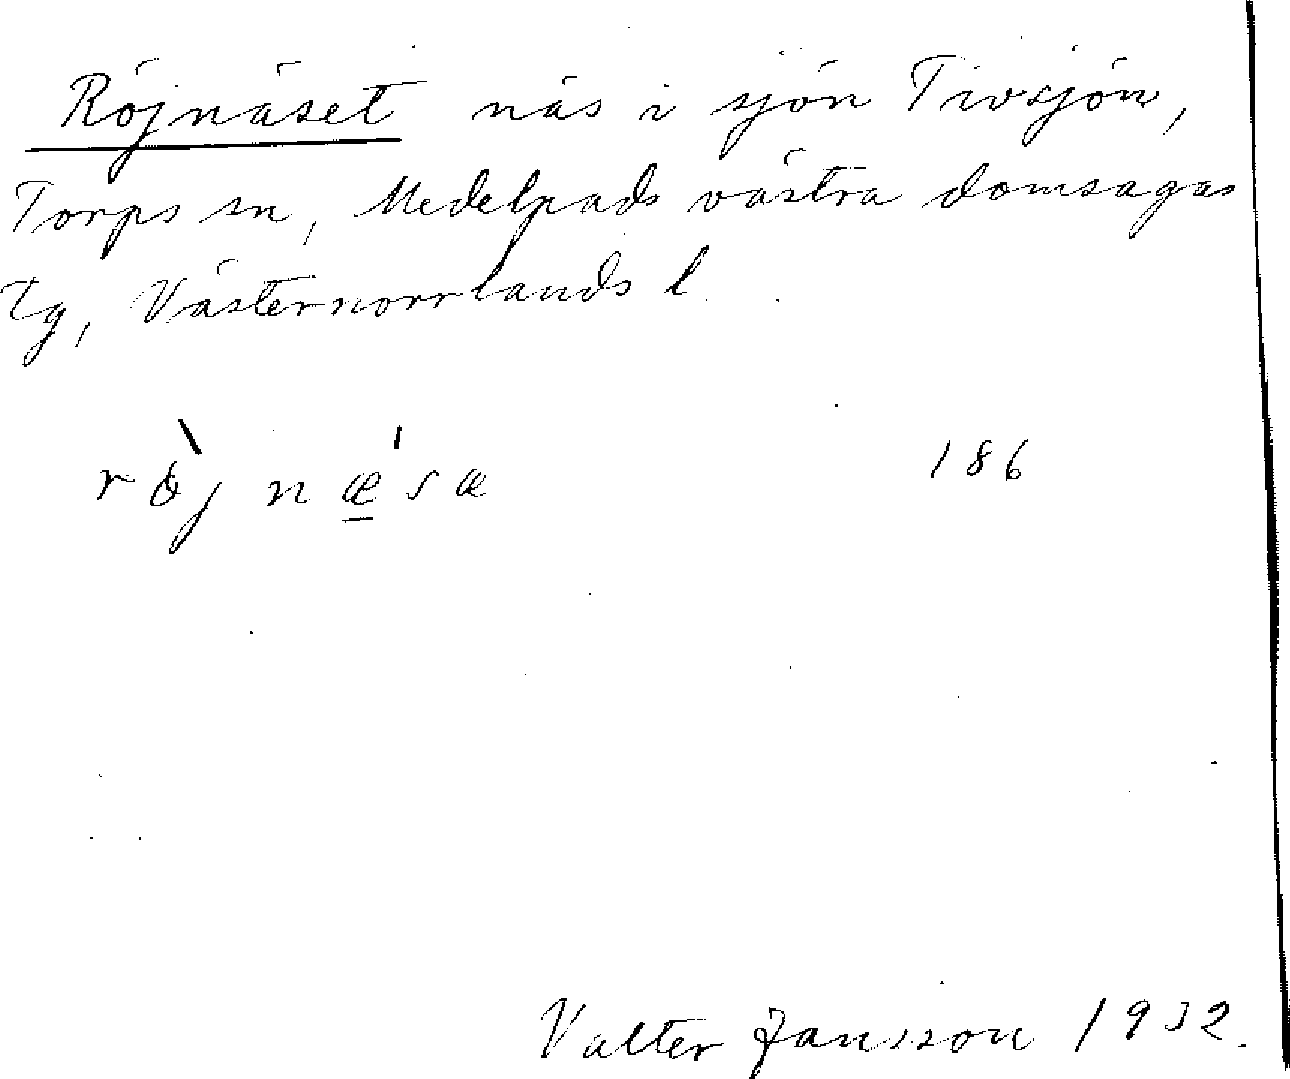 Röjnäset näs i sjön Tivsjön,
Torps sn, Medelpads västra domsagas
tg, Västernorrlands l.
rö̀j næ̲'sæ 186
Valter Jansson 1932.